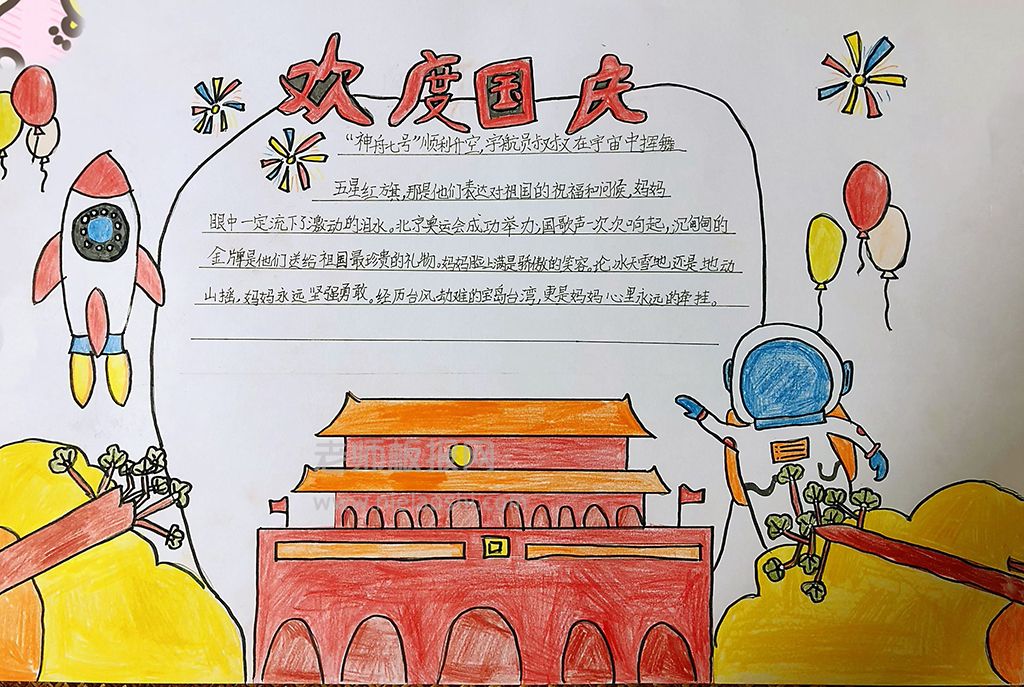 欢度国庆
“神舟七号”顺利升空,宇航员叔叔在宇宙中挥舞
五星红旗,那是他们表达对祖国的祝福和问候,妈妈
眼中一定流下了激动的泪水。北京奥运会成功举办,国歌声一次次响起,沉甸甸的
金牌是他们送给祖国最珍贵的礼物,妈妈脸上满是骄傲的笑容。论冰天雪地还是地动
山摇,妈妈永远坚强勇敢。经历台风劫难的宝岛台湾,更是妈妈心里永远的牵挂。
老师板报网